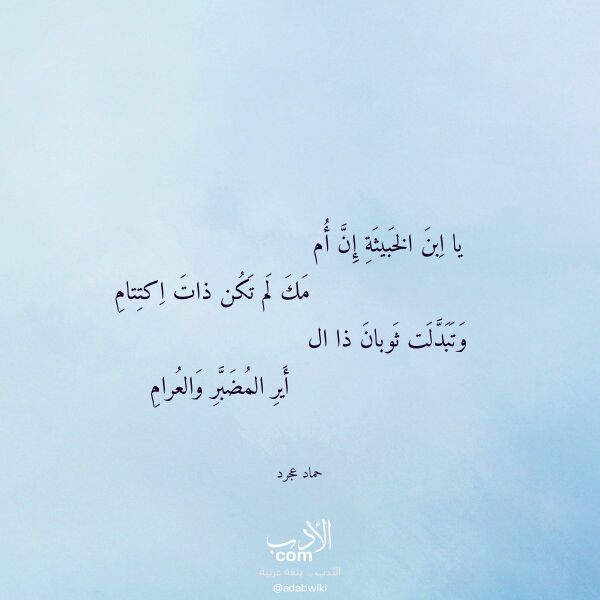 يا اِبنَ الخَبيثَةِ إِنَّ أُم
مَكَ لَم تَكُن ذاتَ اِكتِتامِ
وَتَبَدَّلَت ثَوبانَ ذا ال
أَيرِ المُضَبَّرِ وَالعُرامِ
حماد عجرد
الأدب
com
الأدب .. بلغة عربية
@adabwiki